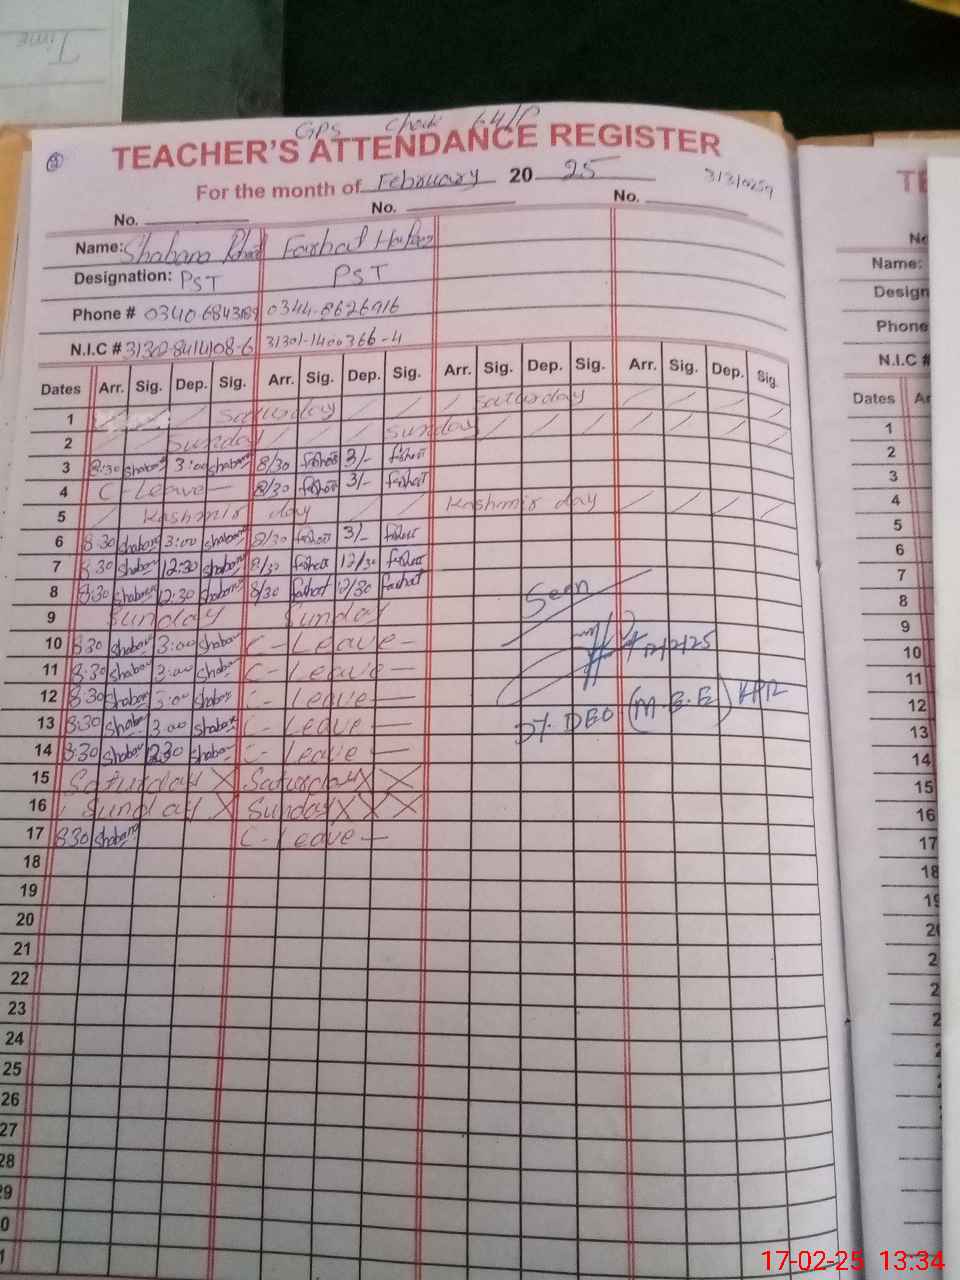 Time
GPS Chak 64/P
TEACHER'S ATTENDANCE REGISTER
For the month of February 20 25
31310259
No. No. No.
Name: Shabana Farhat
Designation: PST PST
Phone # 0340 6843189 0344-8626716
N.I.C # 31302-8414108-6 31301-1400366-4
Dates Arr. Sig. Dep. Sig. Arr. Sig. Dep. Sig. Arr. Sig. Dep. Sig. Arr. Sig. Dep. Sig.
1 Saturday Saturday
2 Sunday Sunday
3 8:30 Shabana 3:00 Shabana 8/30 farhat 3/- farhat
4 C-Leave- 8/30 farhat 3/- farhat
5 Kashmir day Kashmir day
6 8:30 Shabana 3:00 Shabana 8/30 farhat 3/- farhat
7 8:30 Shabana 12:30 Shabana 8/30 farhat 12/30 farhat
8 8:30 Shabana 12:30 Shabana 8/30 farhat 12/30 farhat
9 Sunday Sunday
Seen
10 8:30 Shabana 3:00 Shabana C- Leave-
12/2/25
11 8:30 Shabana 3:00 Shabana C- Leave-
12 8:30 Shabana 3:00 Shabana C- Leave-
DY. DEO (M.E.E) KPR
13 8:30 Shabana 3:00 Shabana C- Leave-
14 8:30 Shabana 12:30 Shabana C- Leave-
15 Saturday X Saturday X X
16 Sunday X Sunday X X X
17 8:30 Shabana C- Leave-
18
19
20
21
22
23
24
25
26
27
28
29
0
1
TE
No
Name:
Design
Phone
N.I.C #
Dates Ar
1
2
3
4
5
6
7
8
9
10
11
12
13
14
15
16
17
18
19
20
2
2
2
2
17-02-25 13:34